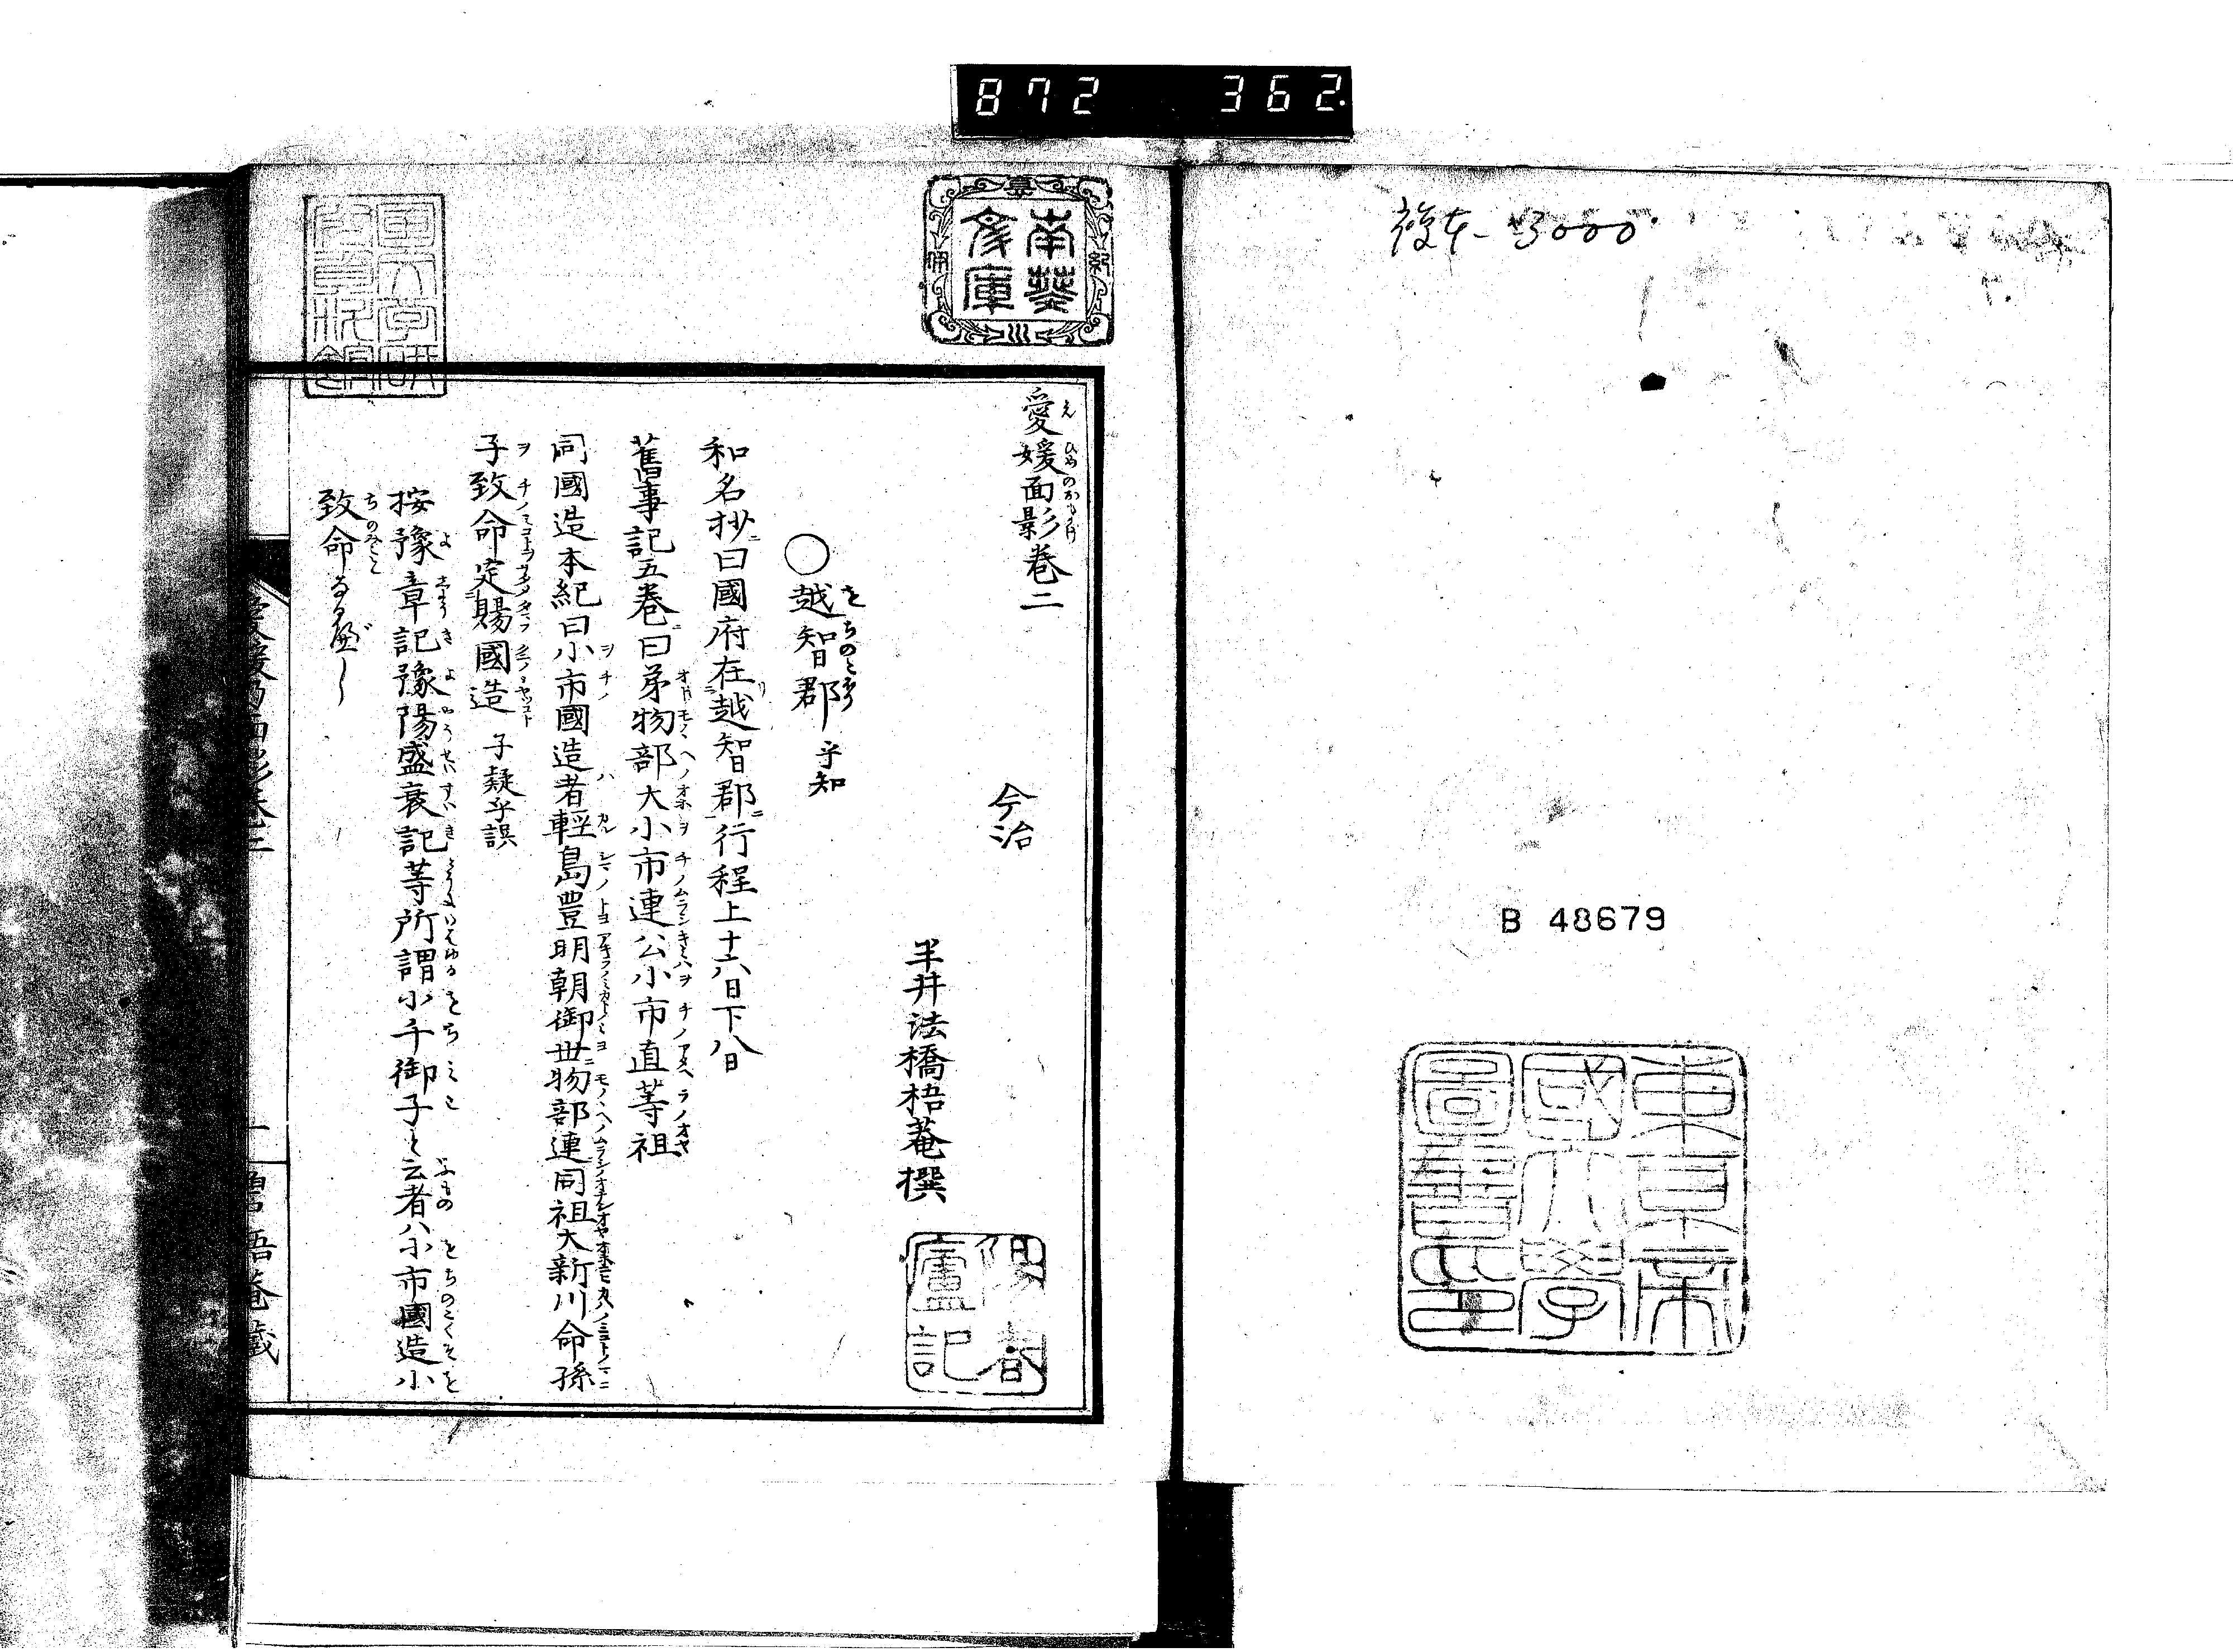 872 362
複本 ¥3000
B 48679
東京帝
國大學
圖書印
南葵
文庫
愛媛面影巻二
今治
半井法橋梧菴撰
○越智郡 乎知
和名抄曰國府在越智郡行程上十六日下八日
舊事記五巻曰弟物部大小市連公小市直等祖
同國造本紀曰小市國造者輕島豐明朝御世物部連同祖大新川命孫
子致命定賜國造 子疑乎誤
按豫章記豫陽盛衰記等所謂小千御子と云者ハ小市國造小
致命なるべし